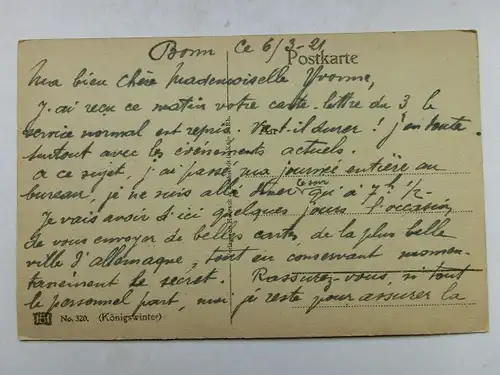 Bonn ce 6/3-21
Postkarte
Ma bien chère Mademoiselle Yvonne,
J'ai reçu ce matin votre carte-lettre du 3, le
service normal est repris. Va-t-il durer! j'en doute
surtout avec les événements actuels.
A ce sujet, j'ai passé ma journée entière au
bureau, je ne suis allé qu'à 7h 1/2.
Je vais avoir d'ici quelques jours l'occasion,
de vous envoyer de belles cartes, de la plus belle
ville d'allemagne, tout en conservant momen-
tanément le secret.
Rassurez-vous, si tout
le personnel part, moi je reste pour assurer la
No. 320. (Königswinter)